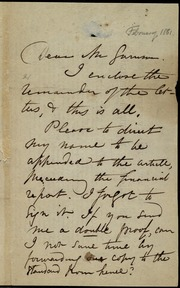 February 1881.
Dear Mr Garrison
I enclose the
remainder of the
& this is all.
Please to direct
my name to be
appended to the article,
preceding the financial
report. I forgot to
sign it. If you send
me a double proof, can
I not save time by
forwarding one copy to the
Standard from here?